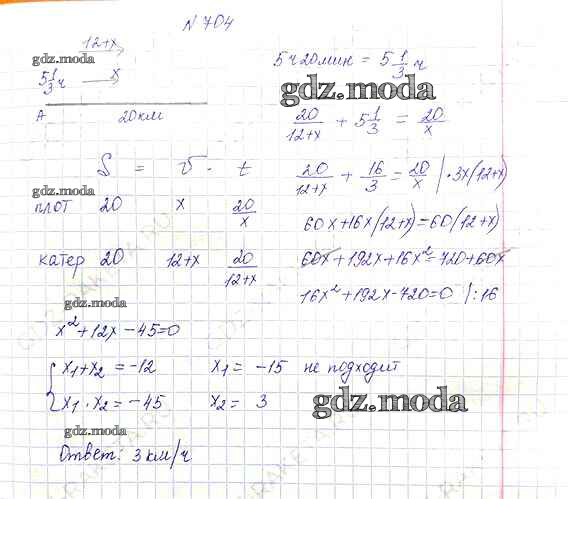 N 704
12+x
gdz.moda
5 1/3 ч x
A 20км
5ч20мин = 5 1/3 ч
gdz.moda
20/(12+x) + 5 1/3 = 20/x
S = v · t
gdz.moda
плот 20 x 20/x
катер 20 12+x 20/(12+x)
20/(12+x) + 16/3 = 20/x | ·3x(12+x)
60x+16x(12+x)=60(12+x)
60x+192x+16x²=720+60x
16x²+192x-720=0 |:16
gdz.moda
x²+12x-45=0
{ x₁+x₂ = -12 x₁ = -15 не подходит
x₁·x₂ = -45 x₂ = 3
gdz.moda
gdz.moda
Ответ: 3 км/ч